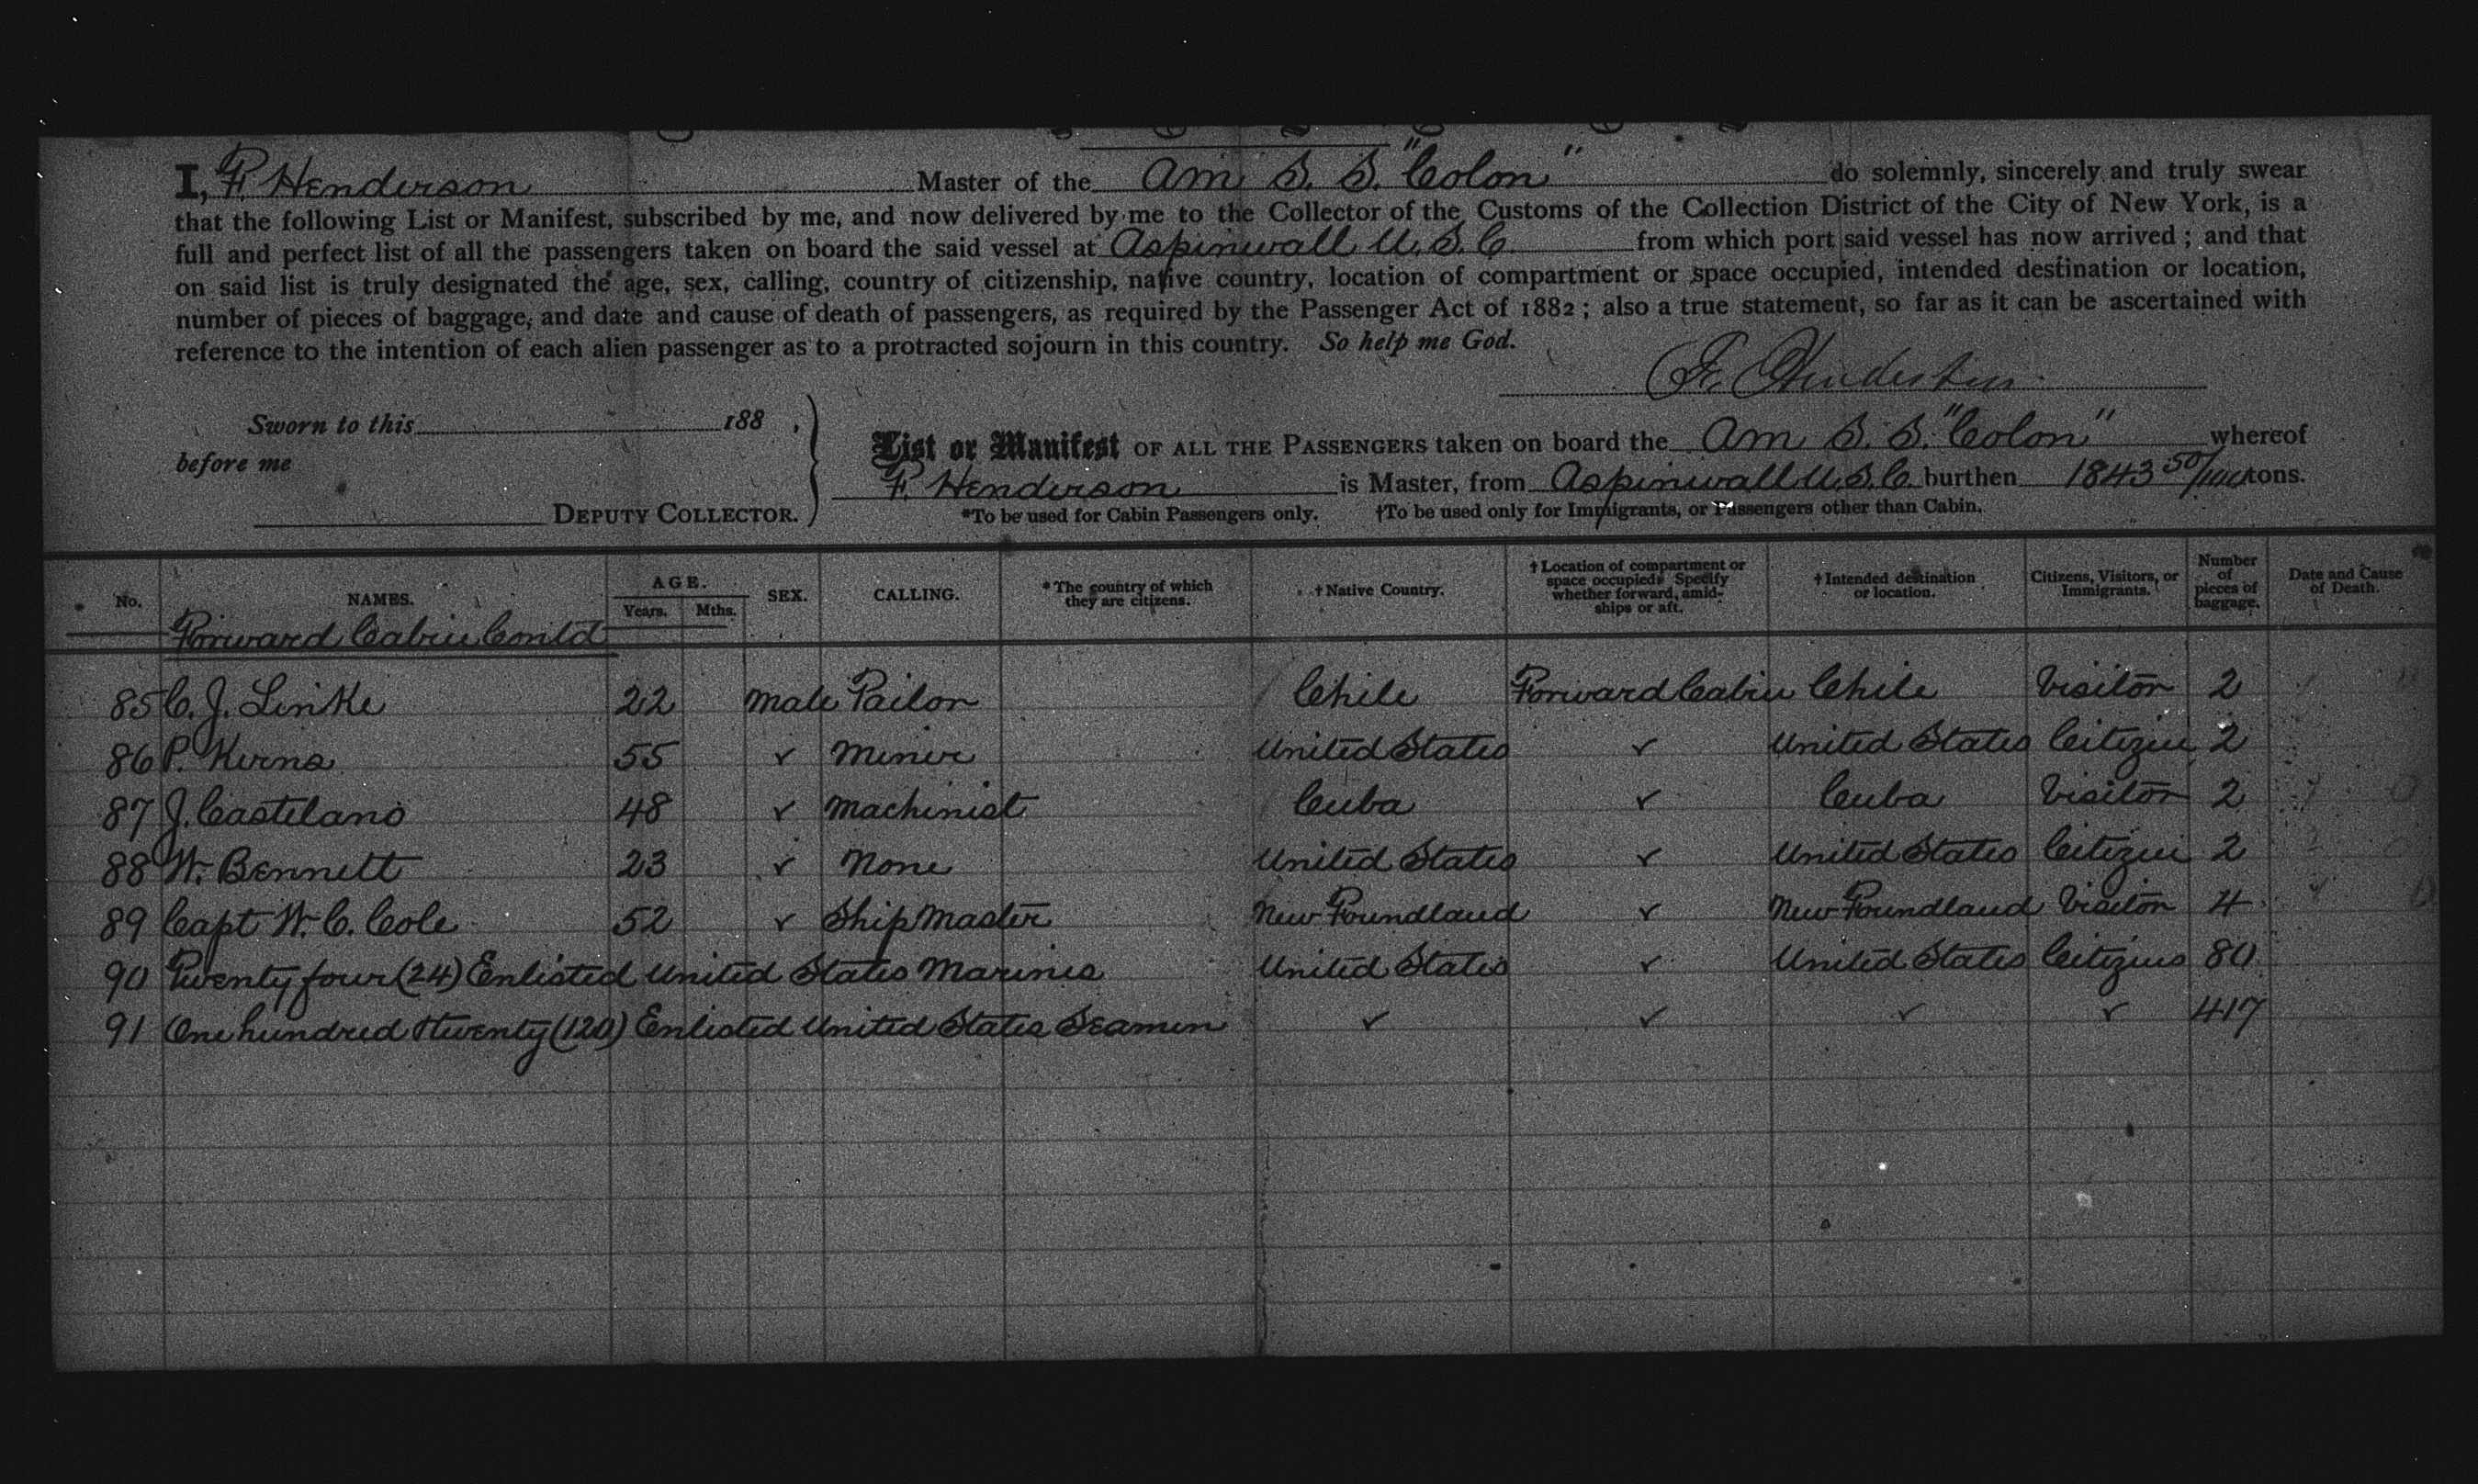 I, F. Henderson Master of the Am S. S. "Colon" do solemnly, sincerely and truly swear
that the following List or Manifest, subscribed by me, and now delivered by me to the Collector of the Customs of the Collection District of the City of New York, is a
full and perfect list of all the passengers taken on board the said vessel at Aspinwall U.S.C. from which port said vessel has now arrived; and that
on said list is truly designated the age, sex, calling, country of citizenship, native country, location of compartment or space occupied, intended destination or location,
number of pieces of baggage, and date and cause of death of passengers, as required by the Passenger Act of 1882; also a true statement, so far as it can be ascertained with
reference to the intention of each alien passenger as to a protracted sojourn in this country. So help me God.
F. Henderson
Sworn to this 188 ,
before me
DEPUTY COLLECTOR.
List or Manifest OF ALL THE PASSENGERS taken on board the Am S. S. "Colon" whereof
F. Henderson is Master, from Aspinwall U.S.C. burthen 1843 50/100 tons.
*To be used for Cabin Passengers only. †To be used only for Immigrants, or Passengers other than Cabin.
No. NAMES. AGE. Years. Mths. SEX. CALLING. *The country of which they are citizens. †Native Country. †Location of compartment or space occupied. Specify whether forward, amidships or aft. †Intended destination or location. Citizens, Visitors, or Immigrants. Number of pieces of baggage. Date and Cause of Death.
Forward Cabin Contd
85 C. J. Linke 22 Male Tailor Chile Forward Cabin Chile Visitor 2
86 P. Kerns 55 ✓ Miner United States ✓ United States Citizen 2
87 J. Castelano 48 ✓ Machinist Cuba ✓ Cuba Visitor 2
88 W. Bennett 23 ✓ None United States ✓ United States Citizen 2
89 Capt W. C. Cole 52 ✓ Ship Master New Foundland ✓ New Foundland Visitor 4
90 Twenty four (24) Enlisted United States Marines United States ✓ United States Citizens 80
91 One hundred & twenty (120) Enlisted United States Seamen ✓ ✓ ✓ ✓ 417